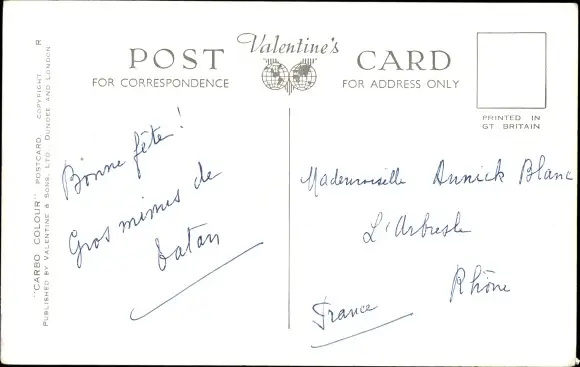 "CARBO COLOUR" POSTCARD. COPYRIGHT R
PUBLISHED BY VALENTINE & SONS, LTD. DUNDEE AND LONDON
POST Valentine's CARD
FOR CORRESPONDENCE FOR ADDRESS ONLY
PRINTED IN
GT. BRITAIN
Bonne fête!
Gros mimis de
tatan
Mademoiselle Annick Blanc
L'Arbresle
Rhône
France